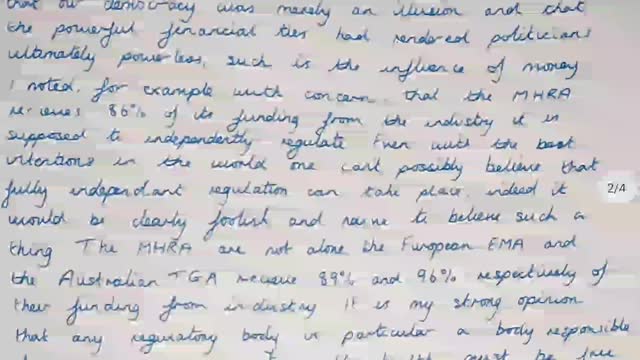 that our democracy was merely an illusion and that
the powerful financial ties had rendered politicians
ultimately powerless, such is the influence of money
I noted, for example with concern, that the MHRA
receives 86% of its funding from the industry it is
supposed to independently regulate Even with the best
intentions in the world one can't possibly believe that
fully independant regulation can take place, indeed it
would be clearly foolish and naive to believe such a
thing The MHRA are not alone the European EMA and
the Australian TGA receive 89% and 96% respectively of
their funding from industry It is my strong opinion
that any regulatory body in particular a body responsible
must be free
2/4